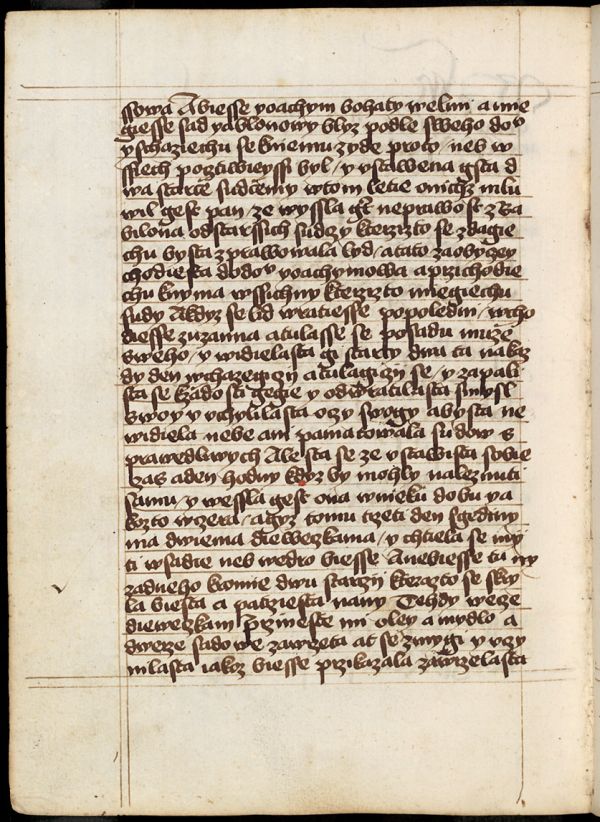 ssowa A biesse yoachym bohaty welmi a mie
giesse sad yablonowy blyz podle sweho do͞u
y schaziechu se kniemu zyde proto / neb w
ssiech poczstiwieyssi byl / y vstawena gsta d
wa starcze sudczemy wtom letie onichz mlu
wil gest pan / ze wyssla gt neprawost z Ba
bilona od starssich sudczy kterzizto se zdagie
chu bysta zprawowala lyd / a tato zaobyczey
chodiesta dodo͞u yoachymowa a przichodie
chu knyma wssichny kterzizto miegiechu
sudy A kdyz se lid wratiesse popoledni / wcho
diesse zuzanna a tulasse se posadu muze
sweho / y widielasta gi starcy dwa ta nakaz
dy den wchazegiczi a tulagiczi se / y zapali
sta se kzadosti gegie y odwratilasta smysl
swoy y vchylilasta oczy swogy abysta ne
widiela nebe ani pamatowala sudow s
prawedliwych Ale sta se ze vstawista sobie
czas a den hodny kdyz by mohly naleznuti
samu / y wessla gest ona wnieku dobu ya
kozto wczera / a gyz tomu trzeti den sgediny
ma dwiema diewczkama / y chtiela se my
ti wsadie neb wedro biesse A nebiesse ta ny
zadneho kromie dwu starczy kterazto se skry
la biesta a patrziesta nany Tehdy wecze
diewczkam Przineste mi oley a mydlo a
dwerze sadowe zawrzeta at se zmygi y vczy
nilasta iakoz biesse przikazala zawrzelasta